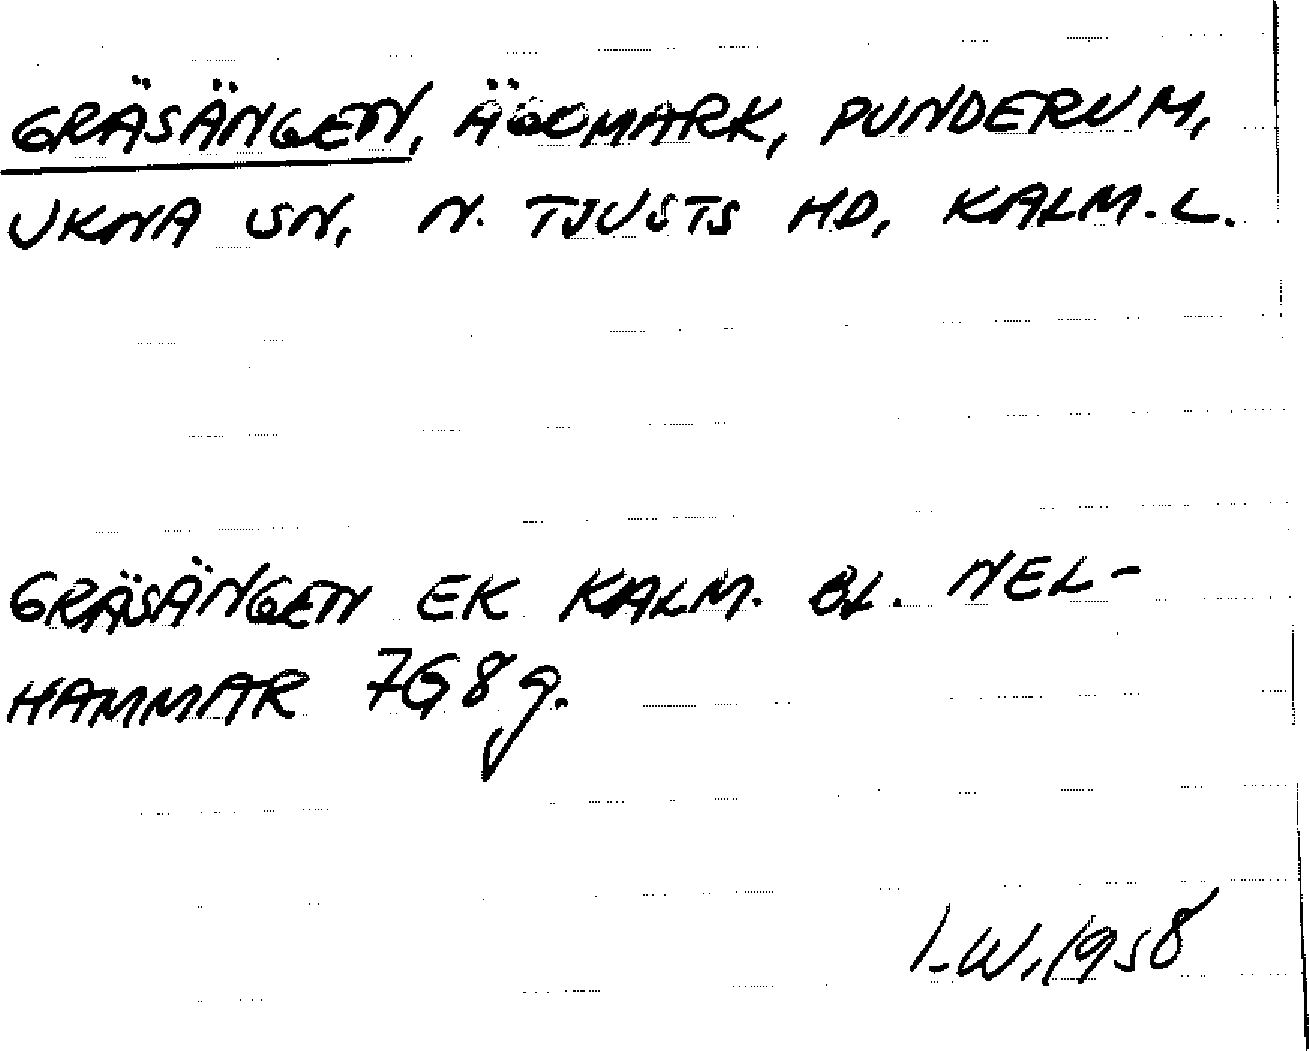 GRÄSÄNGEN, ÄGOMARK, PUNDERUM,
UKNA SN, N. TJUSTS HD, KALM. L.
GRÄSÄNGEN EK KALM. BL. NEL-
HAMMAR 7G8g.
I.W. 1958